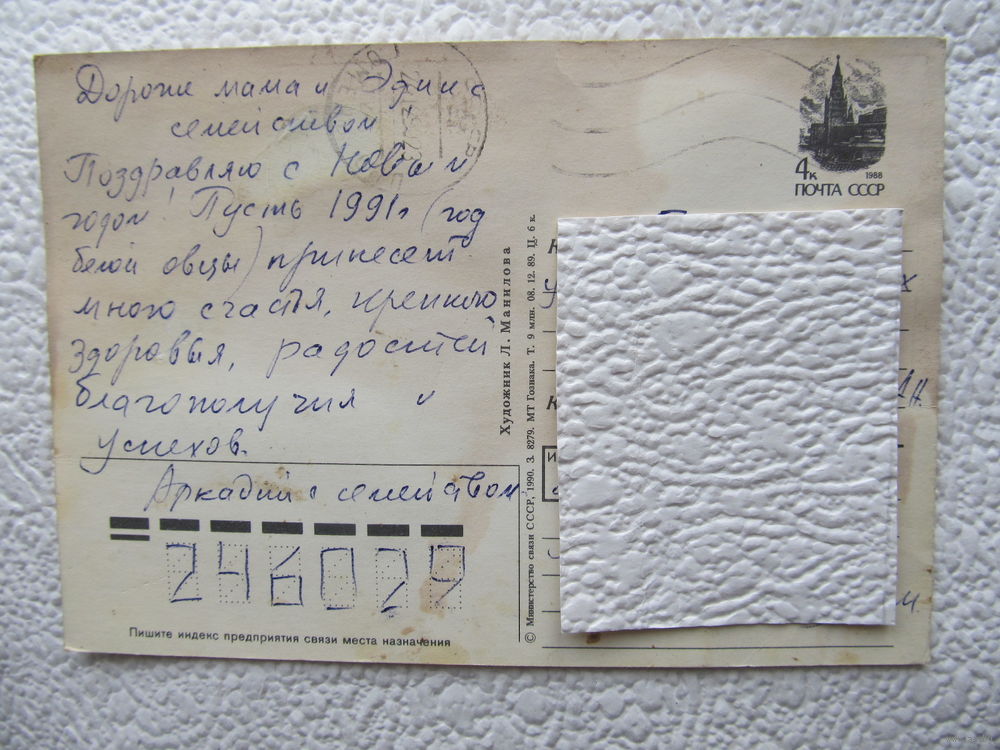 Дороже мама и Эдик с
семейством
Поздравляю с Новым
годом! Пусть 1991г (год
белой овцы) принесет
много счастья, крепкого
здоровья, радостей
благополучия и
успехов.
Аркадий с семейством
246029
Пишите индекс предприятия связи места назначения
Художник Л. Манилова
© Министерство связи СССР, 1990. З. 8279. МТ Гознака. Т. 9 млн. 08. 12. 89. Ц. 6 к.
4к
1988
ПОЧТА СССР